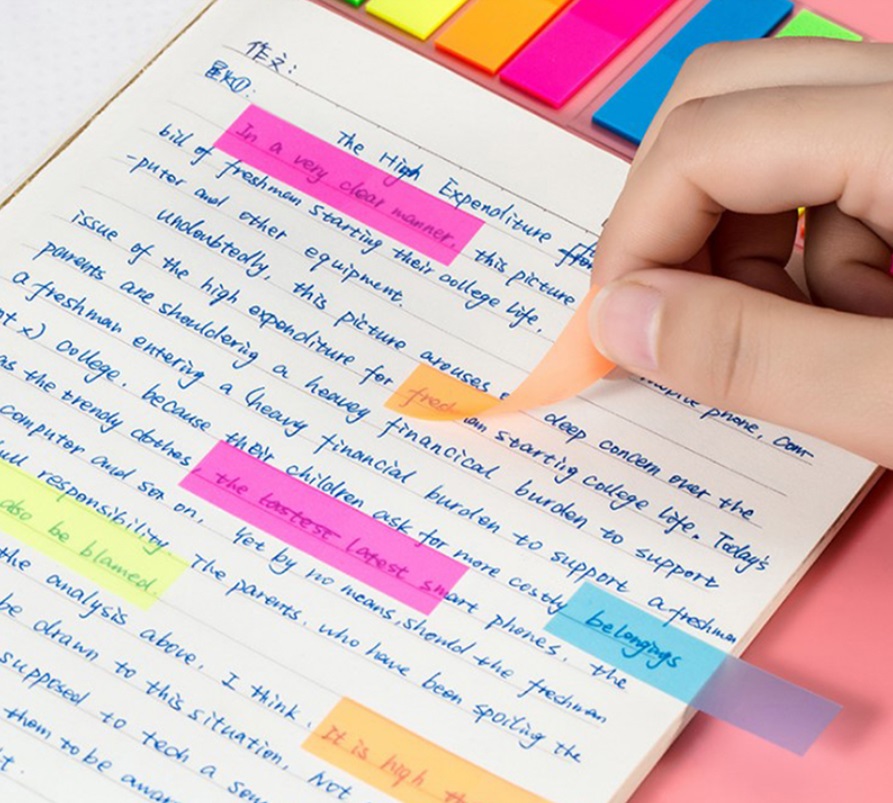 作文:
The High Expenditure
In a very clear manner, this picture
bill of freshman starting their college life, mobile phone, com-
-puter and other equipment.
undoubtedly, this picture arouses deep concern over the
issue of the high expenditure for freshman starting college life. Today's
parents are shouldering a heavey financical burden to support
a freshman entering a (heavy financial burden to support a freshman
x) college, because their children ask for more costly belongings
as the trendy clothes, the tastest latest smart phones, the
computer and so on, Yet by no means, should the freshman
responsibility. The parents, who have been spoiling the
also be blamed.
the analysis above, I think, It is high
be drawn to this situation, Not
supposed to tech a
them to be